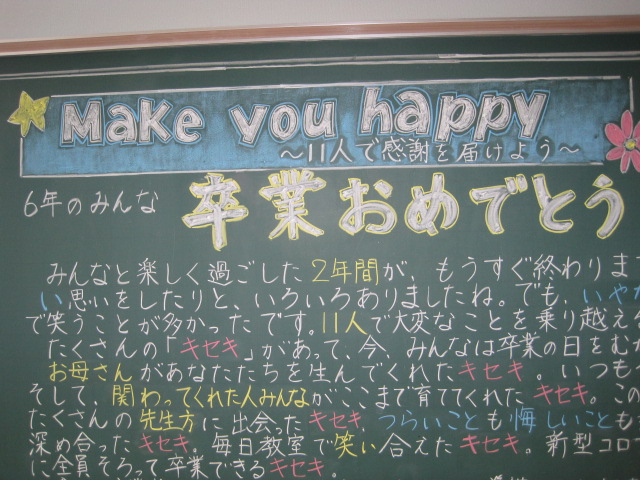 Make you happy
～11人で感謝を届けよう～
6年のみんな
卒業おめでとう
みんなと楽しく過ごした2年間が、もうすぐ終わりま
い思いをしたりと、いろいろありましたね。でも、いやな
で笑うことが多かったです。11人で大変なことを乗り越え
たくさんの「キセキ」があって、今、みんなは卒業の日をむか
お母さんがあなたたちを生んでくれたキセキ。いつも
そして、関わってくれた人みんながここまで育ててくれたキセキ。この
たくさんの先生方に出会ったキセキ。つらいことも悔しいことも
深め合ったキセキ。毎日教室で笑い合えたキセキ。新型コロ
に全員そろって卒業できるキセキ。